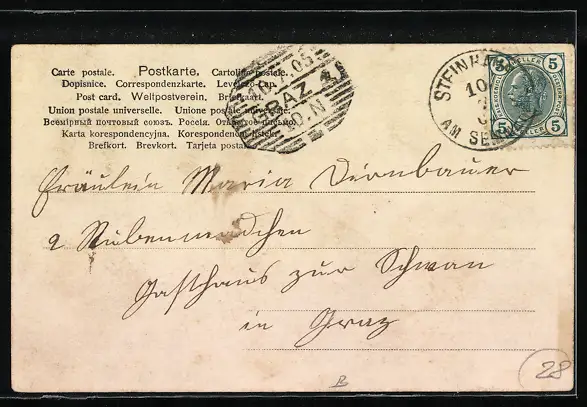 Carte postale. Postkarte. Cartolina postale.
Dopisnice. Correspondenzkarte. Levelező-lap.
Post card. Weltpostverein. Briefkaart.
Union postale universelle. Unione postale universale.
Всемірный почтовый союзъ. Россія. Открытое письмо.
Karta korespondencyjna. Korespondenční lístek.
Brefkort. Brevkort. Tarjeta postal.
GRAZ
10.N
STEINHAUS
10
AM SEMMERING
5 HELLER 5
5 5
Fräulein Maria Dirnbauer
2 Stubenmädchen
Gasthaus zur Schwan
in Graz
28
B